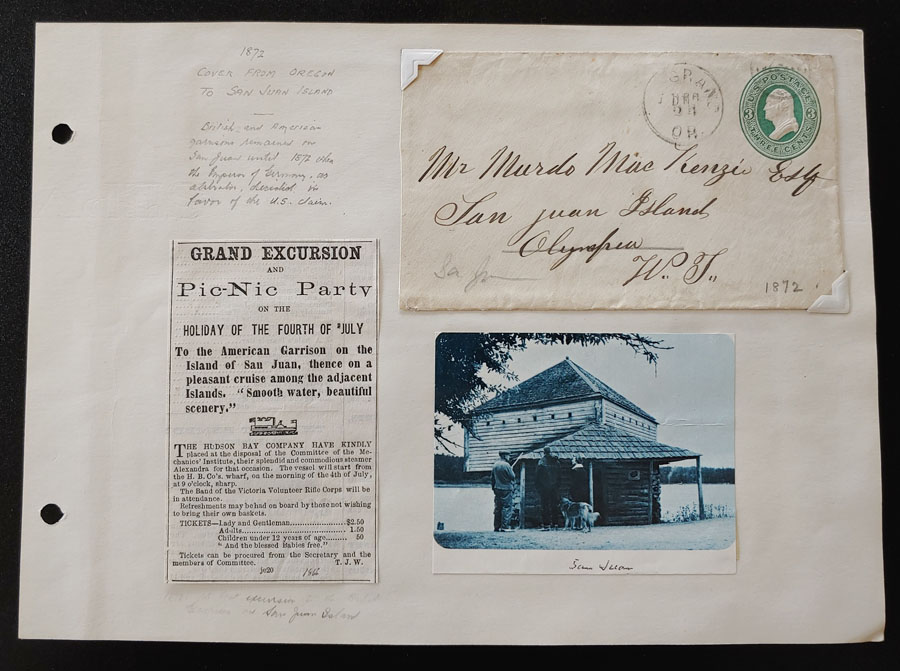 1872
COVER FROM OREGON
TO SAN JUAN ISLAND
British and American
garrisons remained on
San Juan until 1872 when
the Emperor of Germany, as
arbitrator, decided in
favor of the U.S. claim.
GRAND EXCURSION
AND
Pic-Nic Party
ON THE
HOLIDAY OF THE FOURTH OF JULY
To the American Garrison on the
Island of San Juan, thence on a
pleasant cruise among the adjacent
Islands. "Smooth water, beautiful
scenery."
THE HUDSON BAY COMPANY HAVE KINDLY
placed at the disposal of the Committee of the Me-
chanics' Institute, their splendid and commodious steamer
Alexandra for that occasion. The vessel will start from
the H. B. Co's. wharf, on the morning of the 4th of July,
at 9 o'clock, sharp.
The Band of the Victoria Volunteer Rifle Corps will be
in attendance.
Refreshments may be had on board by those not wishing
to bring their own baskets.
TICKETS—Lady and Gentleman..................$2.50
Adults.................................. 1.50
Children under 12 years of age........ 50
"And the blessed Babies free."
Tickets can be procured from the Secretary and the
members of Committee. T. J. W.
je20 1866
excursion to the
on San Juan Island
GRAND
OR.
U.S. POSTAGE
3 3
THREE CENTS
Mr Murdo Mac Kenzie Esq
San juan Island
Olympia
W. T.
Sa Ju
1872
San Juan